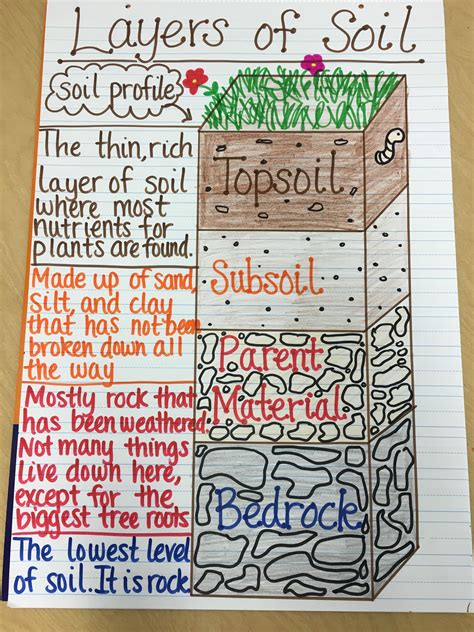 Layers of Soil
soil profile
The thin, rich
layer of soil
where most
nutrients for
plants are found.
Topsoil
Made up of sand,
silt, and clay
that has not been
broken down all
the way
Subsoil
Mostly rock that
has been weathered.
Not many things
live down here,
except for the
biggest tree roots
Parent
Material
The lowest level
of soil. It is rock
Bedrock